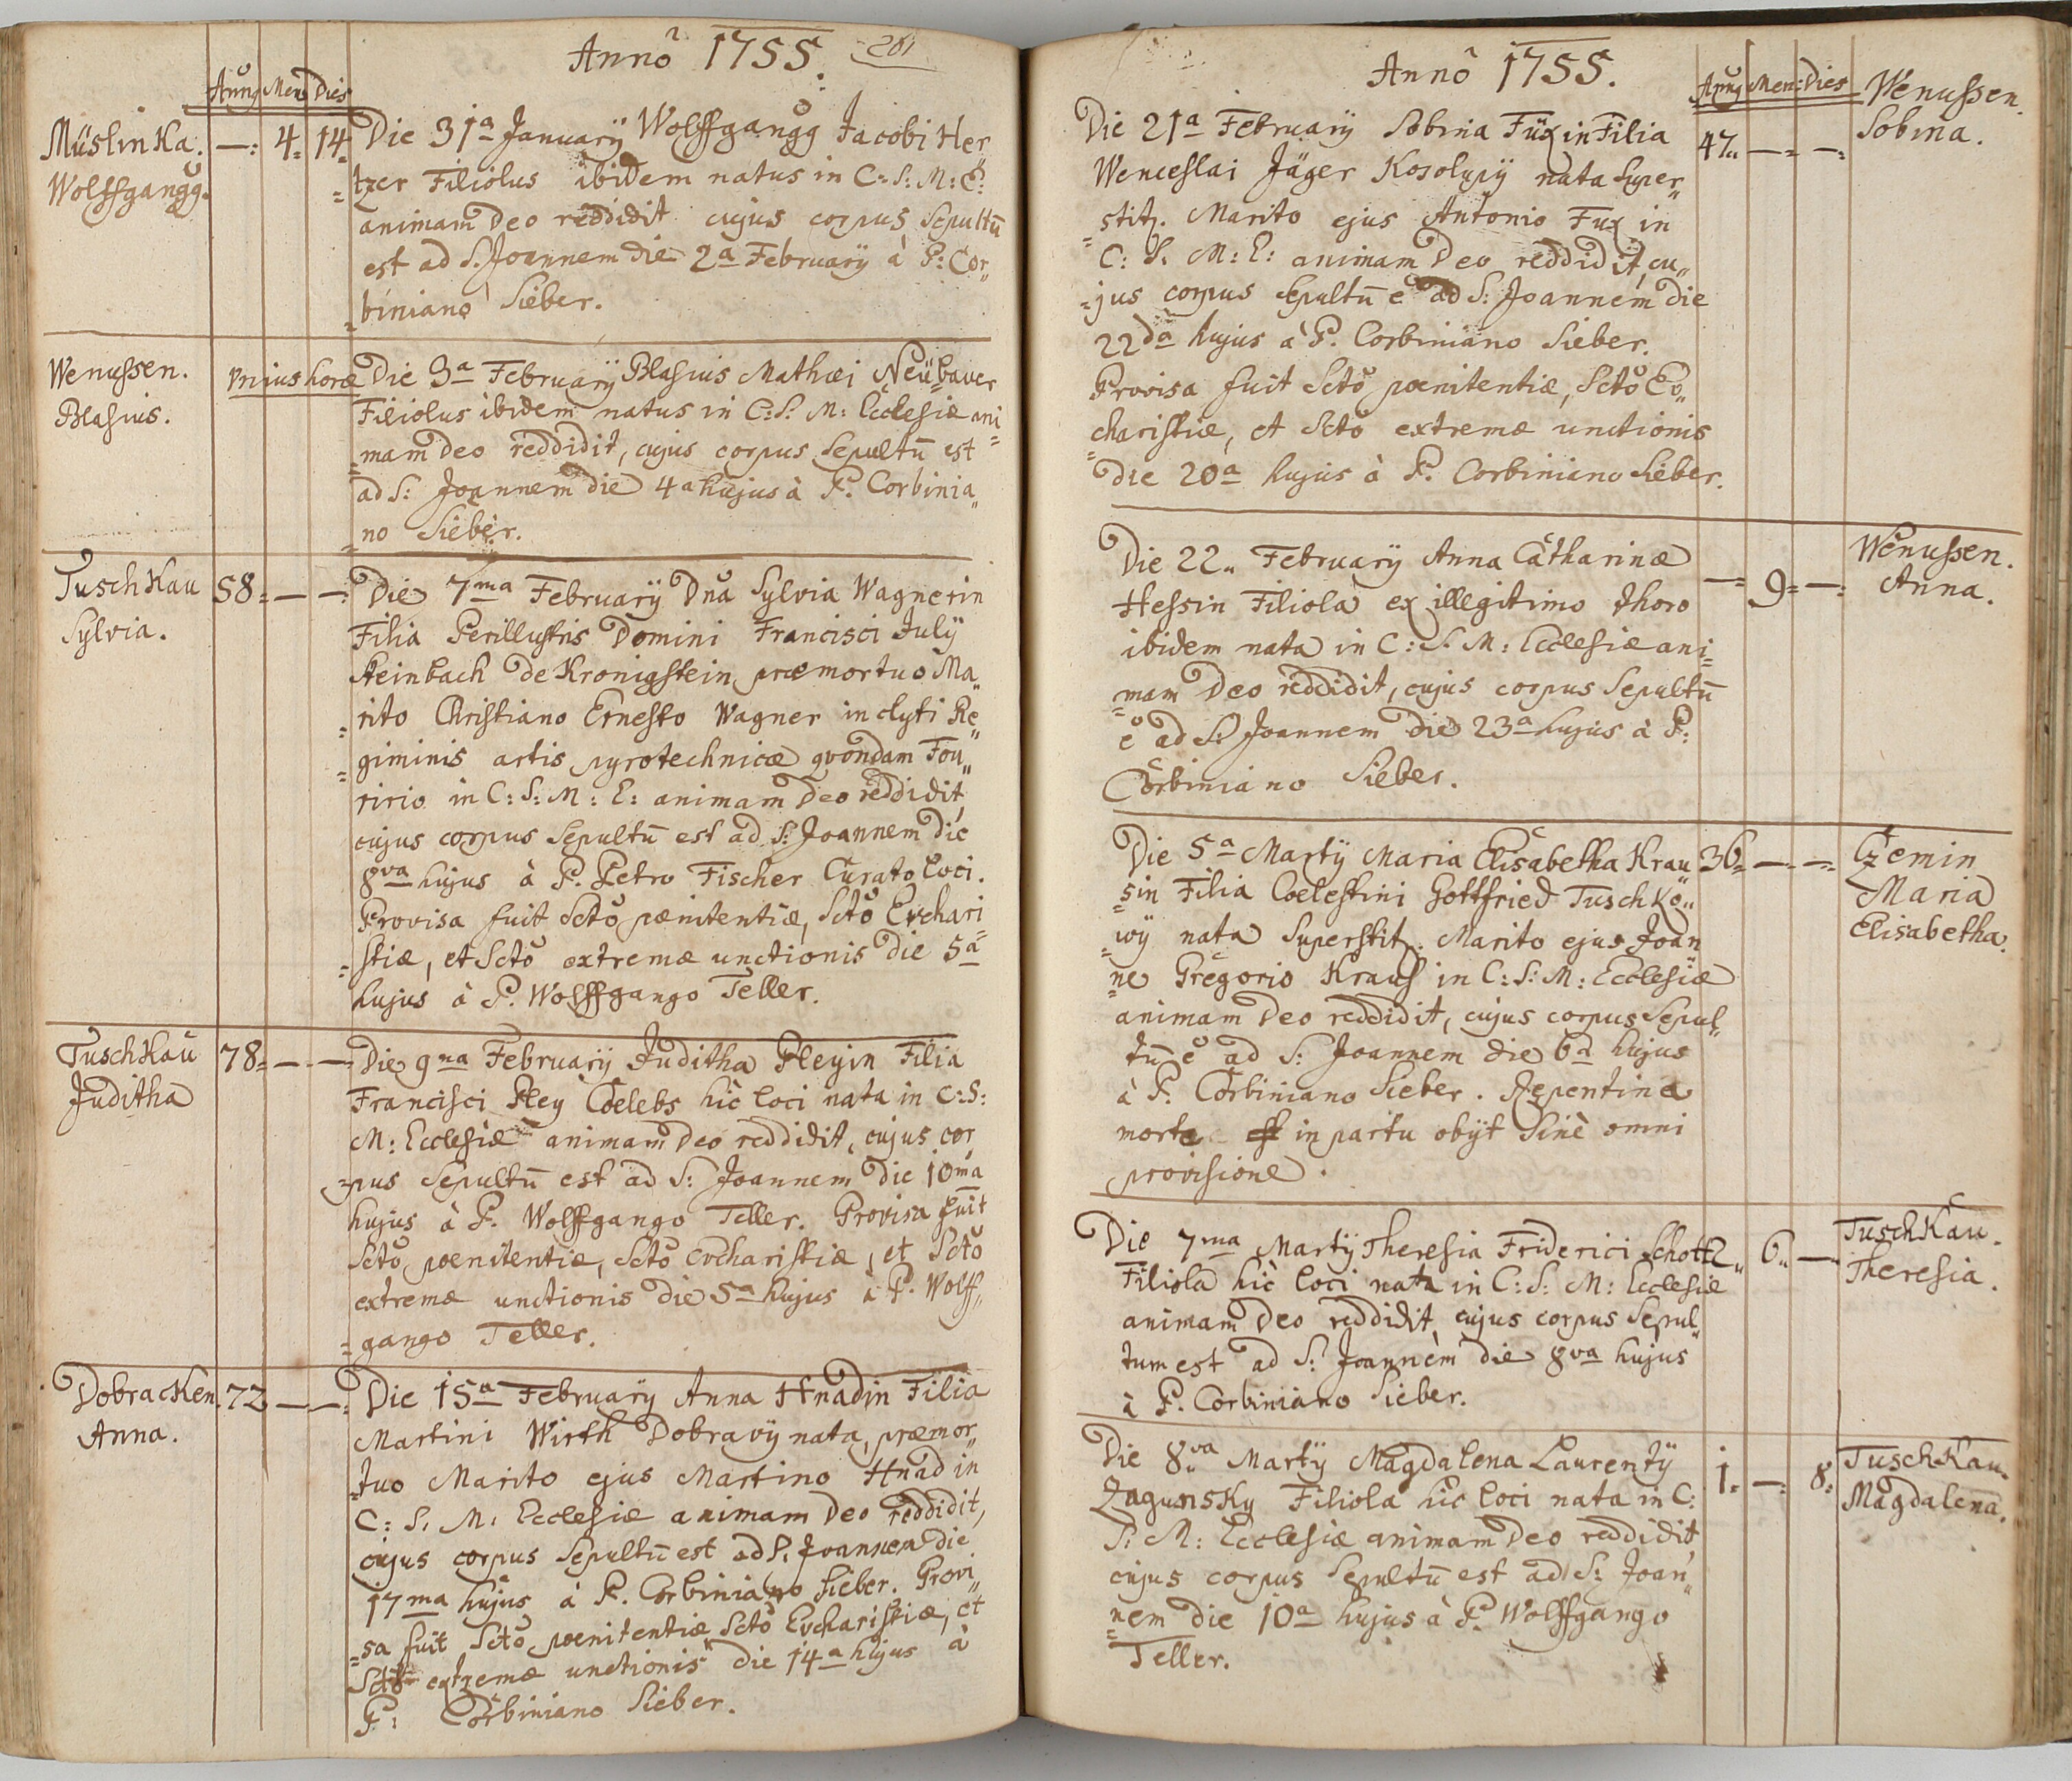 Annô 1755. 201
Annȳ Men Dies
Müslinka. —: 4. 14. Die 31ª Januarÿ Wolffgangg Jacobi Her
Wolffgangg. tzer Filiolus ibidem natus in C: S: M: E:
animam Deo reddidit cujus corpus Sepultū
est ad S. Joannem die 2ª Februarÿ à P: Cor„
biniano Sieber.
Wenussen. Vnius horæ Die 3ª Februarÿ Blasius Mathæi Neübaver
Blasius. Filiolus ibidem natus in C: S: M: Ecclesiæ ani
mam Deo reddidit, cujus corpus Sepultū est
ad S: Joannem die 4ª hujus à P. Corbinia„
no Sieber.
Tuschkau 58. — —: Die 7ma Februarÿ Dna Sylvia Wagnerin
Sylvia. Filia Perillustris Domini Francisci Julÿ
Steinbach de Kronigstein, præmortuo Ma„
rito Christiano Ernesto Wagner inclyti Re„
giminis artis pyrotechnicæ qvondam Fou„
ririo in C: S: M: E: animam Deo reddidit,
cujus corpus Sepultū est ad S: Joannem die
8va hujus à P. Petro Fischer Curato loci.
Provisa fuit Sctō pænitentiæ, Sctō Evchari
stiæ, et Sctō extremæ unctionis die 5ª
hujus à P. Wolffgango Teller.
Tuschkau 78. — — Die 9na Februarÿ Juditha Pleyin Filia
Juditha Francisci Pley Cœlebs hic loci nata in C: S:
M: Ecclesiæ animam Deo reddidit, cujus cor
pus Sepultū est ad S: Joannem die 10ma
hujus à P. Wolffgango Teller. Provisa fuit
Sctō pœnitentiæ, Sctō Evcharistiæ, et Sctō
extremæ unctionis die 5ª hujus à P. Wolff„
gango Teller.
Dobracken. 72 — —: Die 15ª Februarÿ Anna Hnadin Filia
Anna. Martini Wirth Dobravÿ nata, præmor„
tuo Marito ejus Martino Hnad in
C: S. M: Ecclesiæ animam Deo reddidit,
cujus corpus Sepultū est ad S. Joannem die
17ma hujus à P. Corbiniano Sieber. Provi„
sa fuit Sctō pœnitentiæ Sctō Evcharistiæ, et
Sctō extremæ unctionis die 14ª hujus à
P: Corbiniano Sieber.
Annô 1755.
Annȳ Men: Dies
Die 21ª Februarÿ Sobina Füxin Filia 47„ —: —: Wenussen.
Wenceslai Jäger Kosolupÿ nata Super„ Sobina.
stit. Marito ejus Antonio Fux in
C: S. M: E: animam Deo reddidit, cu„
jus corpus Sepultū ē ad S: Joannem die
22da hujus à P. Corbiniano Sieber.
Provisa fuit Sctō pœnitentiæ, Sctō Ev„
charistiæ, et Sctō extremæ unctionis
die 20ª hujus à P. Corbiniano Sieber.
Die 22„ Februarÿ Anna Catharinæ —: 9: —: Wenussen.
Hessin Filiola ex illegitimo thoro Anna.
ibidem nata in C: S. M: Ecclesiæ ani
mam Deo reddidit, cujus corpus Sepultū
ē ad S: Joannem die 23ª hujus à P:
Corbiniano Sieber.
Die 5ª Martÿ Maria Elisabetha Krau 36. —: —: Czemin
sin Filia Cœlestini Gottfried Tuschko„ Maria
wÿ nata Superstit. Marito ejus Joan Elisabetha.
ne Gregorio Kraus in C: S: M: Ecclesiæ
animam Deo reddidit, cujus corpus Sepul„
tū ē ad S: Joannem die 6ª hujus
à P. Corbiniano Sieber. Repentina
morte in partu obÿt Sine omni
provisione.
Die 7ma Martÿ Theresia Friderici Schottl 6„ — Tuschkau.
Filiola hic loci nata in C: S: M: Ecclesiæ Theresia.
animam Deo reddidit, cujus corpus Sepul„
tum est ad S: Joannem die 8va hujus
à P. Corbiniano Sieber.
Die 8va Martÿ Magdalena Laurentÿ 1. —: 8: Tuschkau.
Zagunsky Filiola hic loci nata in C: Magdalena.
S: M: Ecclesiæ animam Deo reddidit
cujus corpus Sepultū est ad S: Joan„
nem die 10ª hujus à P. Wolffgango
Teller.